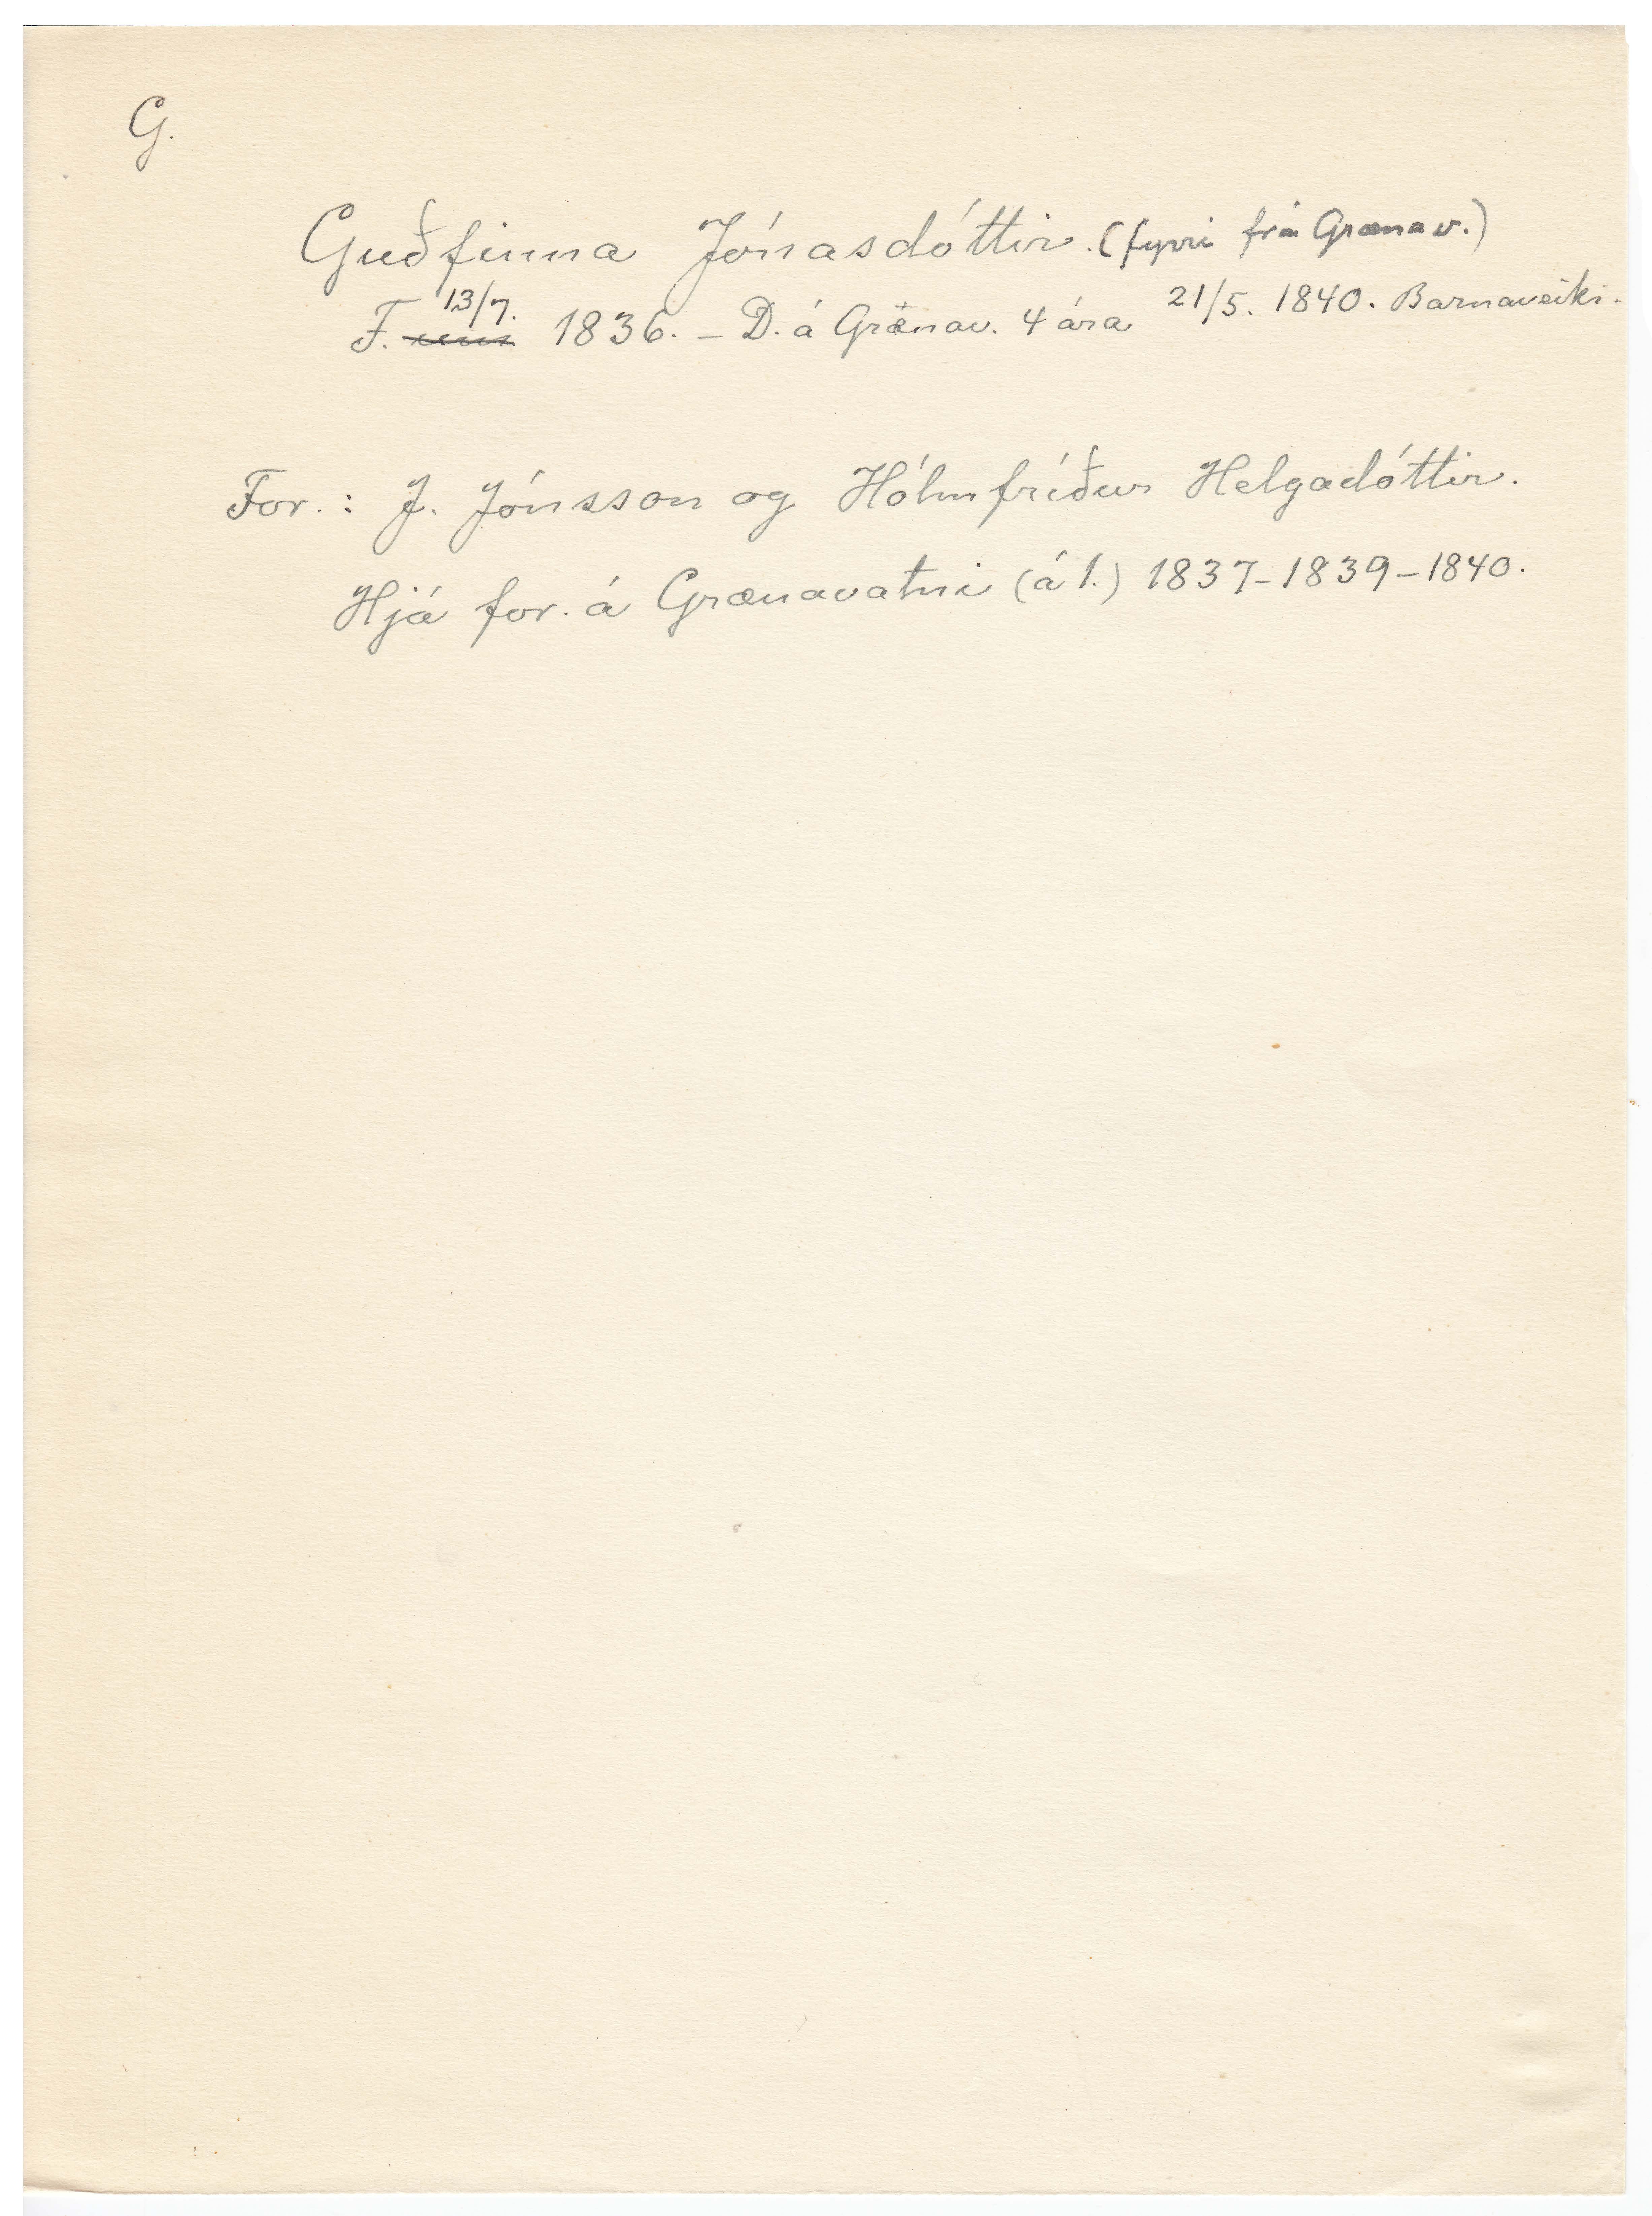 G.
Guðfinna Jónasdóttir. (fyrri frá Grænav.)
F. 13/7. 1836. – D. á Grænav. 4 ára 21/5. 1840. Barnaveiki.
For.: J. Jónsson og Hólmfríður Helgadóttir.
Hjá for. á Grænavatni (á 1.) 1837–1839–1840.